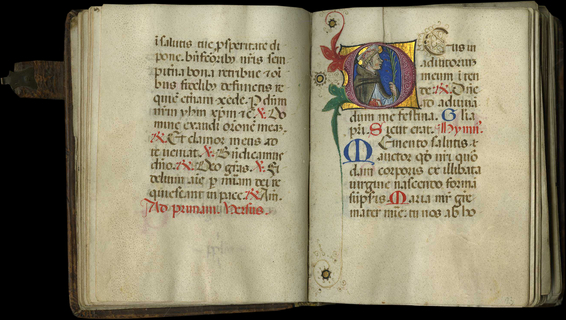 i salutis tue psperitate di
pone. bnfcoribus nris sem
piterna bona retribue & oi
bus fidelib defunctis re
quie etnam xcede. P dnm
nrm yhm xpm &c. ℣ Do
mine exaudi orone meā.
℟ Et clamor meus ad
te veniat. ℣ Bndicamus
dno. ℟ Deo gras. ℣ Fi
delium aie p miam dei re
quiescant in pace. ℟ Am.
Ad primam. Versus.
Deus in
adiutorium
meum inten
de. ℟ Dne
ad adiuva
dum me festina. Glia
pri. Sicut erat. Hymn
Memento salutis
auctor qd nri quo
dam corporis ex illibata
virgine nascendo formā
sūpsris. Maria mr gre
mater mie. tu nos ab ho